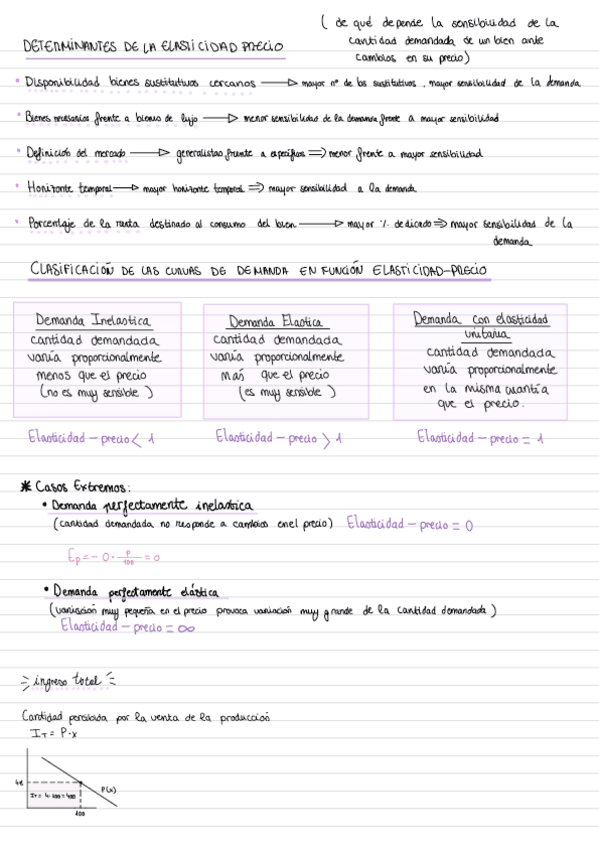 ( de qué depende la sensibilidad de la
DETERMINANTES DE LA ELASTICIDAD PRECIO
cantidad demandada de un bien ante
cambios en su precio)
• Disponibilidad bienes sustitutivos cercanos → mayor nº de los sustitutivos, mayor sensibilidad de la demanda
• Bienes necesarios frente a bienes de lujo → menor sensibilidad de la demanda frente a mayor sensibilidad
• Definición del mercado → generalistas frente a específicos ⇒ menor frente a mayor sensibilidad
• Horizonte temporal → mayor horizonte temporal ⇒ mayor sensibilidad a la demanda
• Porcentaje de la renta destinado al consumo del bien → mayor % dedicado ⇒ mayor sensibilidad de la
demanda
CLASIFICACIÓN DE LAS CURVAS DE DEMANDA EN FUNCIÓN ELASTICIDAD-PRECIO
Demanda Inelastica
cantidad demandada
varía proporcionalmente
menos que el precio
(no es muy sensible)
Elasticidad - precio < 1
Demanda Elastica
cantidad demandada
varía proporcionalmente
más que el precio
(es muy sensible)
Elasticidad - precio > 1
Demanda con elasticidad
unitaria
cantidad demandada
varía proporcionalmente
en la misma cuantía
que el precio.
Elasticidad - precio = 1
* Casos Extremos:
• Demanda perfectamente inelastica
(cantidad demandada no responde a cambios en el precio) Elasticidad - precio = 0
Ep = - 0 · P/100 = 0
• Demanda perfectamente elástica
(variación muy pequeña en el precio provoca variación muy grande de la cantidad demandada)
Elasticidad - precio = ∞
ingreso total
Cantidad percibida por la venta de la producción
IT = P·x
4€
IT = 4·100 = 400
P(x)
100